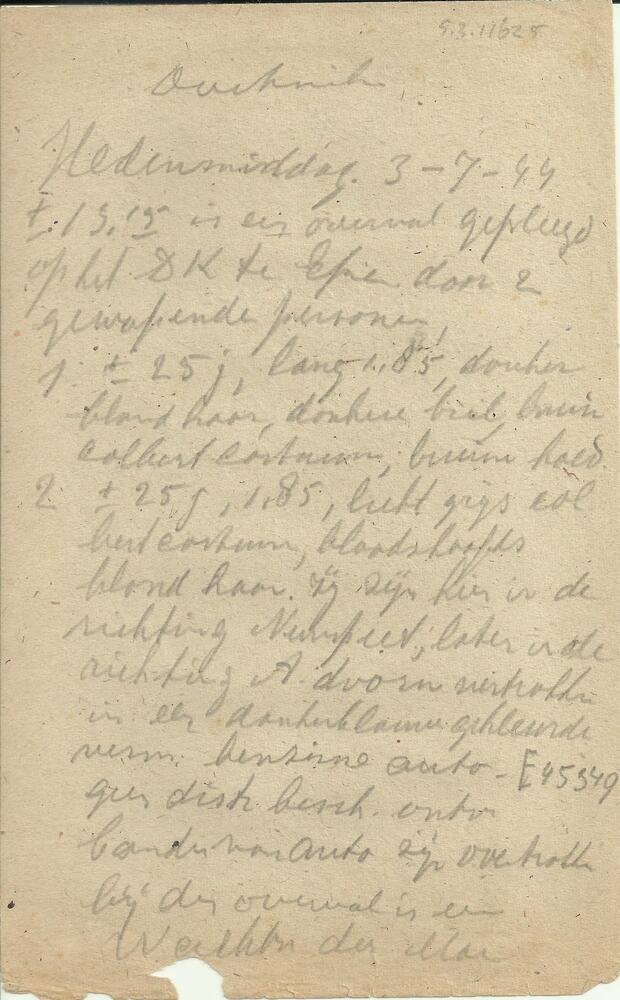 Hedenmiddag 3-7-44
± 15.15 is een overval gepleegd
op het DK te Epe door 2
gewapende personen,
1. ± 25 j, lang 1.85, donker
blond haar, donkere bril, bruin
colbert costuum, bruin hoed
2 ± 25 j, 1,85, licht grijs col
bert costuum, blootshoofds
blond haar. Zij zijn hier in de
richting Nunspeet, later in de
richting A. doorn vertrokken
in een donkerblauw gekleurde
verm. benzine auto - E 45349
geen distr. besch.
banden van auto zijn
bij den overval is een
Wachtm der Mar